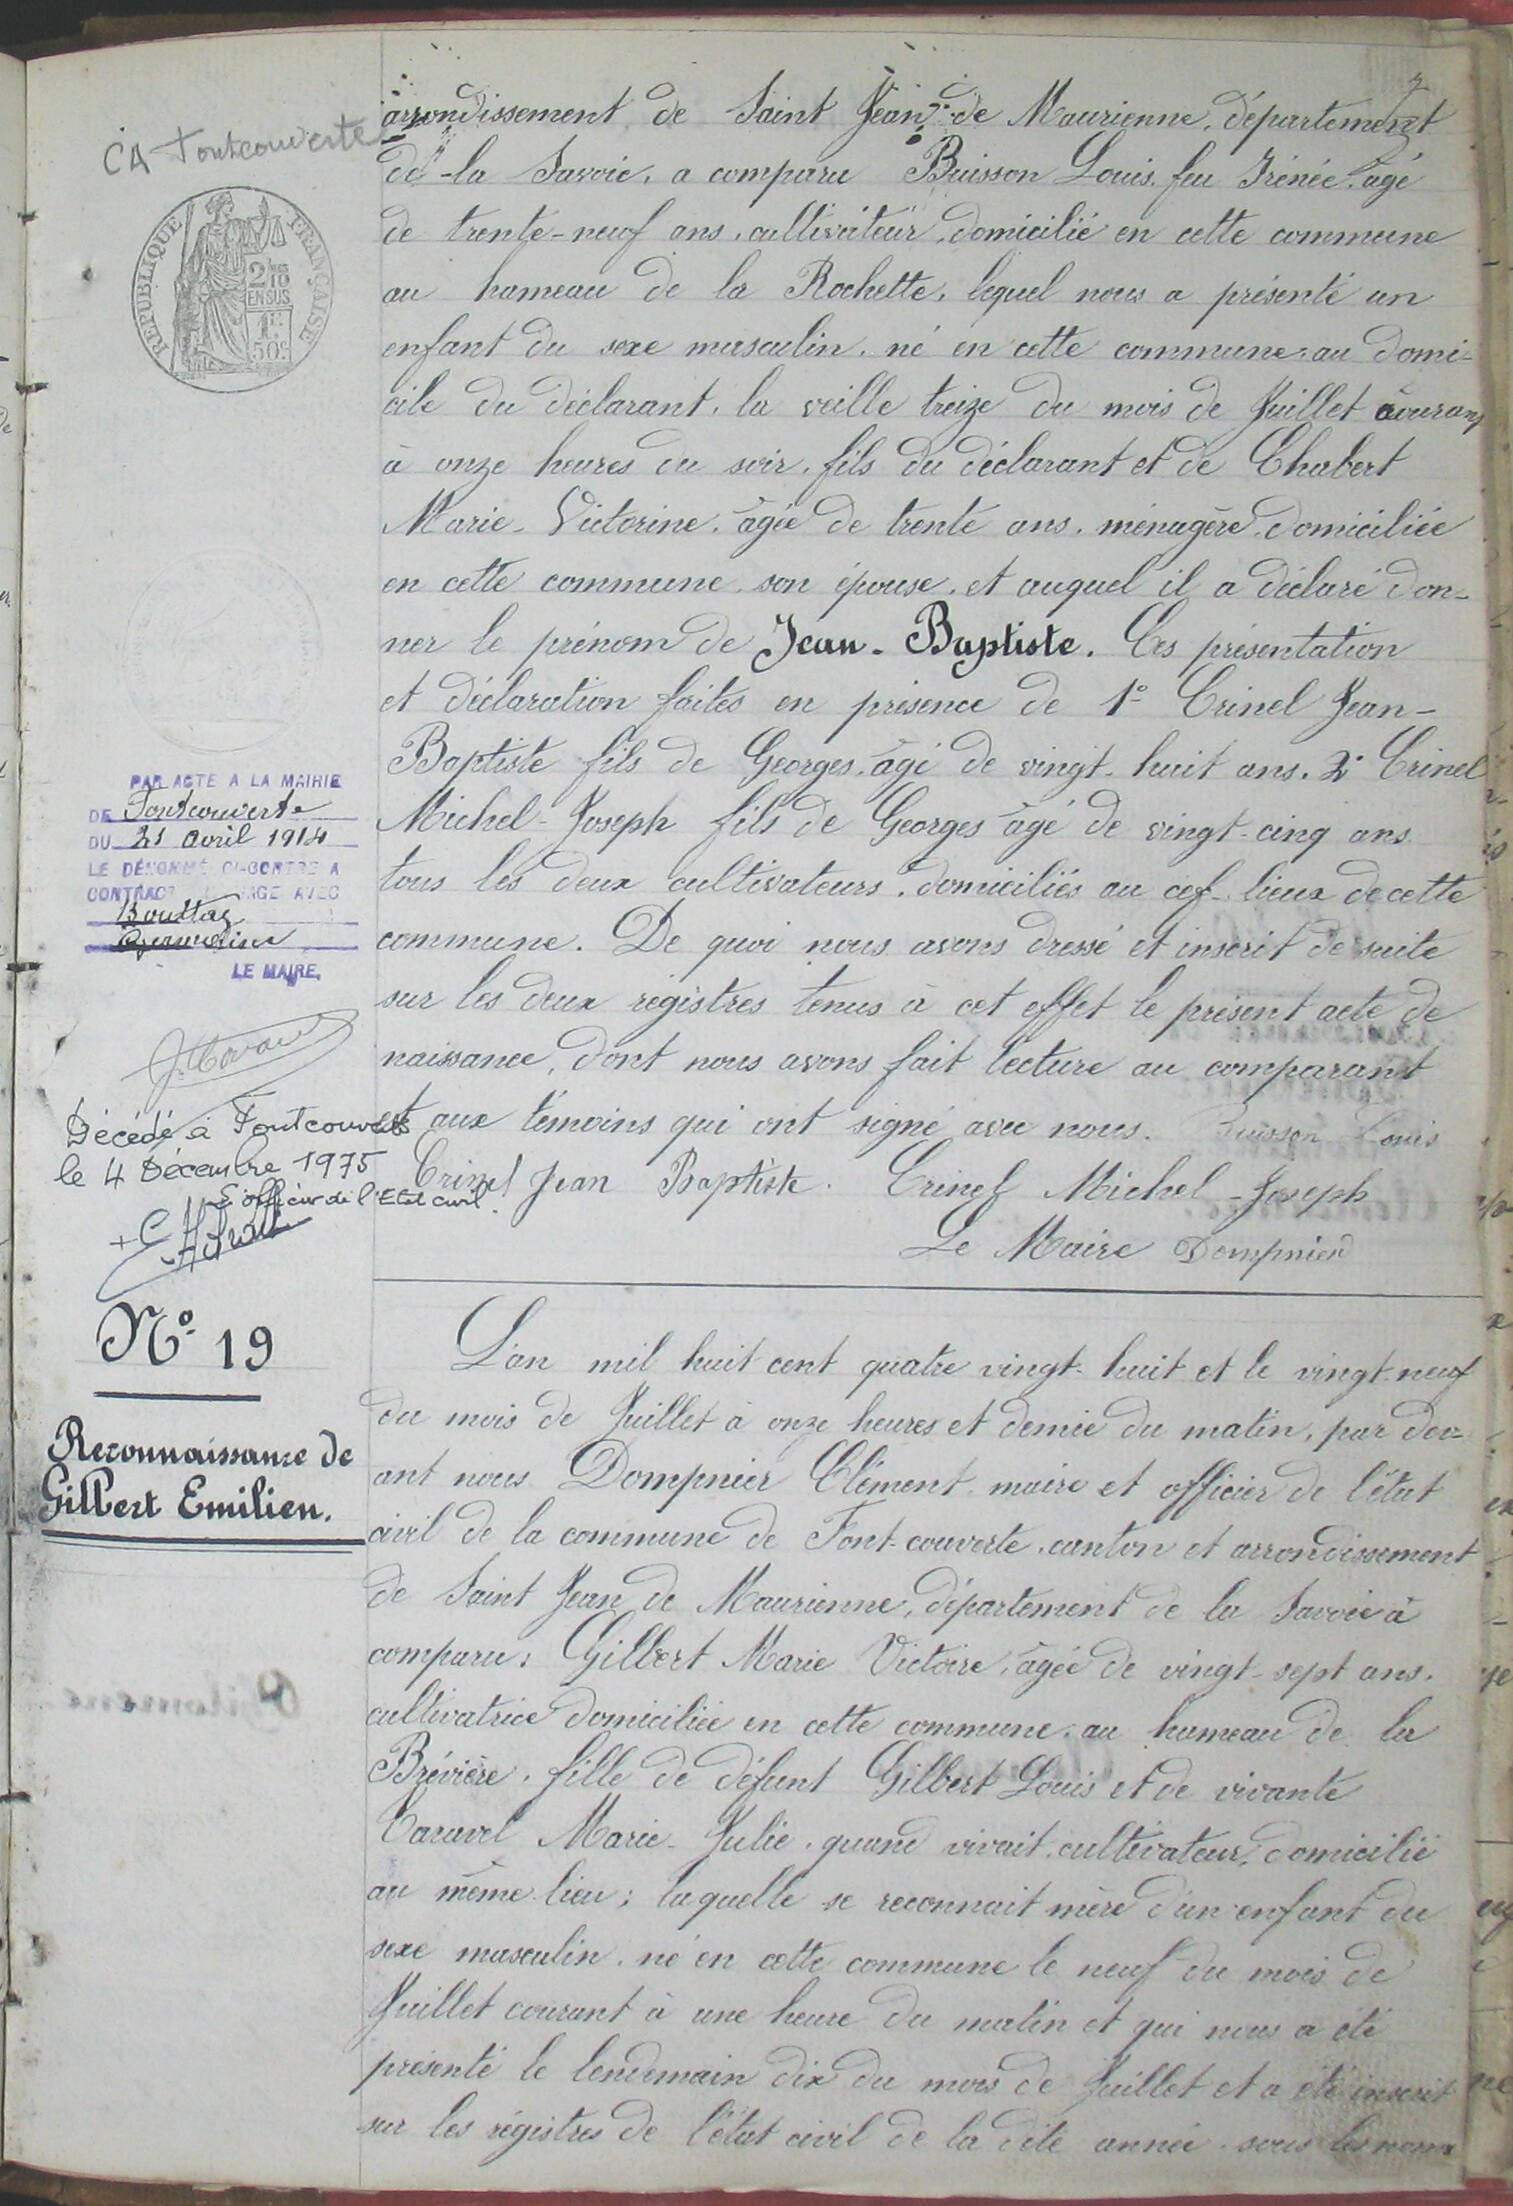 CA Fontcouverte
RÉPUBLIQUE FRANÇAISE
2/10
EN SUS
1F
50c
arrondissement de Saint Jean de Maurienne, département
de la Savoie, a comparu Buisson Louis feu Irénée, âgé
de trente-neuf ans, cultivateur, domicilié en cette commune
au hameau de la Rochette, lequel nous a présenté un
enfant du sexe masculin, né en cette commune, au domi-
cile du déclarant, la veille treize du mois de Juillet courant
à onze heures du soir, fils du déclarant et de Chabert
Marie-Victorine, âgée de trente ans, ménagère, domiciliée
en cette commune, son épouse, et auquel il a déclaré don-
ner le prénom de Jean-Baptiste. Ces présentation
et déclaration faites en présence de 1° Crinel Jean-
Baptiste fils de Georges, âgé de vingt-huit ans. 2° Crinel
Michel-Joseph fils de Georges âgé de vingt-cinq ans
tous les deux cultivateurs, domiciliés au cef-lieux de cette
commune. De quoi nous avons dressé et inscrit de suite
sur les deux régistres tenus à cet effet le présent acte de
naissance, dont nous avons fait lecture au comparant
et aux témoins qui ont signé avec nous. Buisson Louis
Crinel Jean Baptiste. Crinel Michel-Joseph
Le Maire Dompnier
PAR ACTE A LA MAIRIE
DE Fontcouverte
DU 21 avril 1914
LE DÉNOMMÉ CI-CONTRE A
CONTRACTÉ MARIAGE AVEC
Bouttaz
LE MAIRE,
Décédé à Fontcouverte
le 4 Décembre 1975
L'officier de l'Etat civil.
N° 19
Reconnaissance de
Gilbert Emilien.
L'an mil huit cent quatre vingt-huit et le vingt-neuf
du mois de Juillet à onze heures et demie du matin, par dev-
ant nous Dompnier Clément, maire et officier de l'état
civil de la commune de Font-couverte, canton et arrondissement
de Saint Jean de Maurienne, département de la Savoie à
comparu: Gilbert Marie Victoire, âgée de vingt-sept ans,
cultivatrice domiciliée en cette commune, au hameau de la
Brévière, fille de défunt Gilbert Louis et de vivante
Caravel Marie-Julie, quand vivait cultivateur, domicilié
au même lieu; laquelle se reconnait mère d'un enfant du
sexe masculin, né en cette commune le neuf du mois de
Juillet courant à une heure du matin et qui nous a été
présenté le lendemain dix du mois de Juillet et a été inscrit
sur les régistres de l'état civil de la dite année, sous les noms